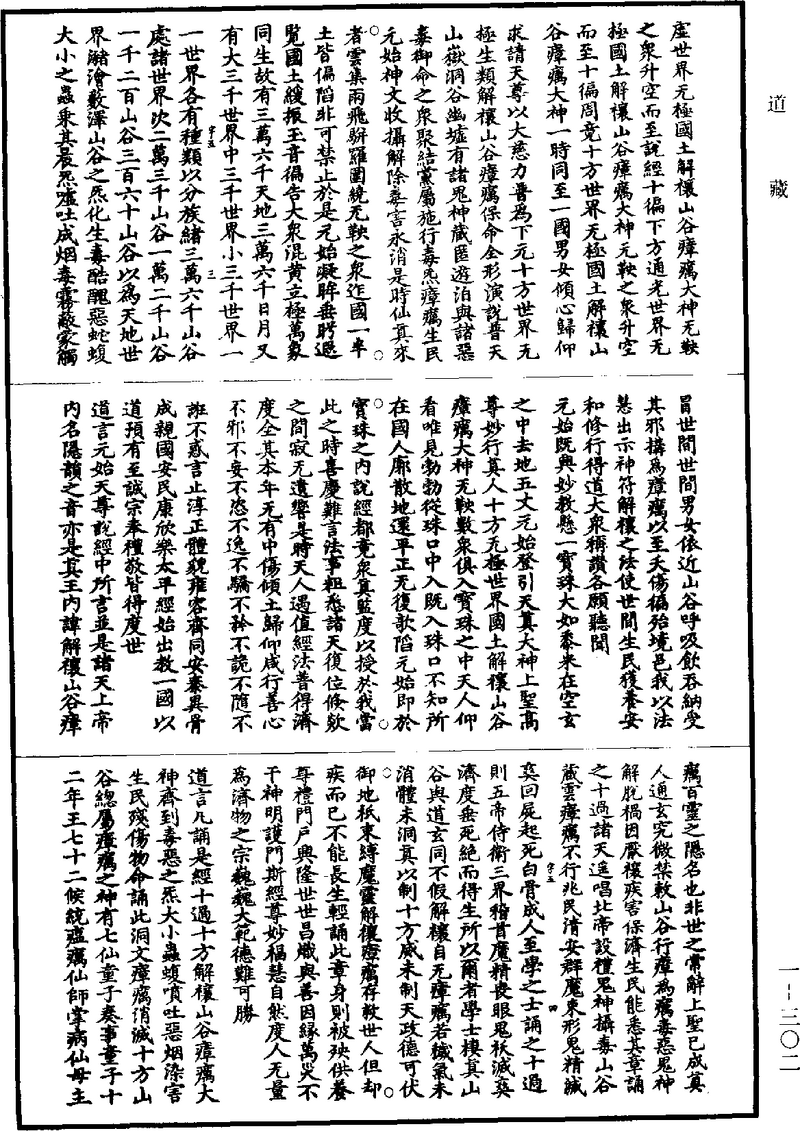 道藏
虛世界无極國土解禳山谷瘴癘大神无鞅
之衆升空而至說經十徧下方通光世界无
極國土解禳山谷瘴癘大神无鞅之衆升空
而至十徧周竟十方世界无極國土解禳山
谷瘴癘大神一時同至一國男女傾心歸仰
求請天尊以大慈力普爲下元十方世界无
極生類解禳山谷瘴癘保命全形演說普天
山嶽洞谷幽墟有諸鬼神藏匿遊泊與諸惡
毒御命之衆聚結黨屬施行毒炁瘴癘生民
元始神文收攝解除毒害永消是時仙真來
者雲集雨飛駢羅圍繞无鞅之衆迮國一半
土皆偏陷非可禁止於是元始凝眸垂眄遐
覽國土緩振玉音徧告大衆混黄立極萬象
同生故有三萬六千天地三萬六千日月又
有大三千世界中三千世界小三千世界一
一世界各有種類以分族緒三萬六千山谷
處諸世界次二萬三千山谷一萬二千山谷
一千二百山谷三百六十山谷以爲天地世
界瀦澮藪澤山谷之炁化生毒酷醜惡蛇蝮
大小之蟲乘其晨炁噓吐成烟毒霧蔽蒙觸
冒世間世間男女依近山谷呼吸飲吞納受
其邪搆爲瘴癘以至夭傷徧殆境邑我以法
慧出示神符解禳之法使世間生民獲養安
和修行得道大衆稱讚各願聽聞
元始既興妙教懸一寶珠大如黍米在空玄
之中去地五丈元始登引天真大神上聖高
尊妙行真人十方无極世界國土解禳山谷
瘴癘大神无鞅數衆俱入寶珠之中天人仰
看唯見勃勃從珠口中入既入珠口不知所
在國人廓散地還平正无復欹陷元始即於
寶珠之内說經都竟衆真監度以授於我當
此之時喜慶難言法事粗悉諸天復位倐欻
之間寂无遺響是時天人遇值經法普得濟
度全其本年无有中傷傾土歸仰咸行善心
不邪不妄不恣不逸不驕不矜不詭不隨不
誑不惑言止淳正體貌雍容齋同安泰異骨
成親國安民康欣樂太平經始出教一國以
道預有至誠宗奉禮敬皆得度世
道言元始天尊說經中所言並是諸天上帝
内名隱韻之音亦是其王内諱解禳山谷瘴
癘百靈之隱名也非世之常辭上聖已成真
人通玄究微禁敕山谷行瘴爲癘毒惡鬼神
解脱禍因厭禳疾害保濟生民能悉其章誦
之十過諸天遥唱北帝設禮鬼神攝毒山谷
蔵雲瘴癘不行兆民清安群魔束形鬼精滅
爽回屍起死白骨成人至學之士誦之十過
則五帝侍衛三界稽首魔精喪眼鬼祅滅爽
濟度垂死絶而得生所以爾者學士棲真山
谷與道玄同不假解禳自无瘴癘若穢氣未
消體未洞真以制十方威未制天政德可伏
御地祇束縛魔靈解禳瘴癘存救世人但却
疾而已不能長生輕誦此章身則被殃供養
尊禮門户興隆世世昌熾與善因緣萬災不
干神明護門斯經尊妙福慧自然度人无量
爲濟物之宗巍巍大範德難可勝
道言凡誦是經十過十方解禳山谷瘴癘大
神齊到毒惡之炁大小蟲蝮噴吐惡烟染害
生民殘傷物命誦此洞文瘴癘消滅十方山
谷總屬瘴癘之神有七仙童子奏事童子十
二年王七十二候統瘟癘仙師掌病仙母主
一-三〇二